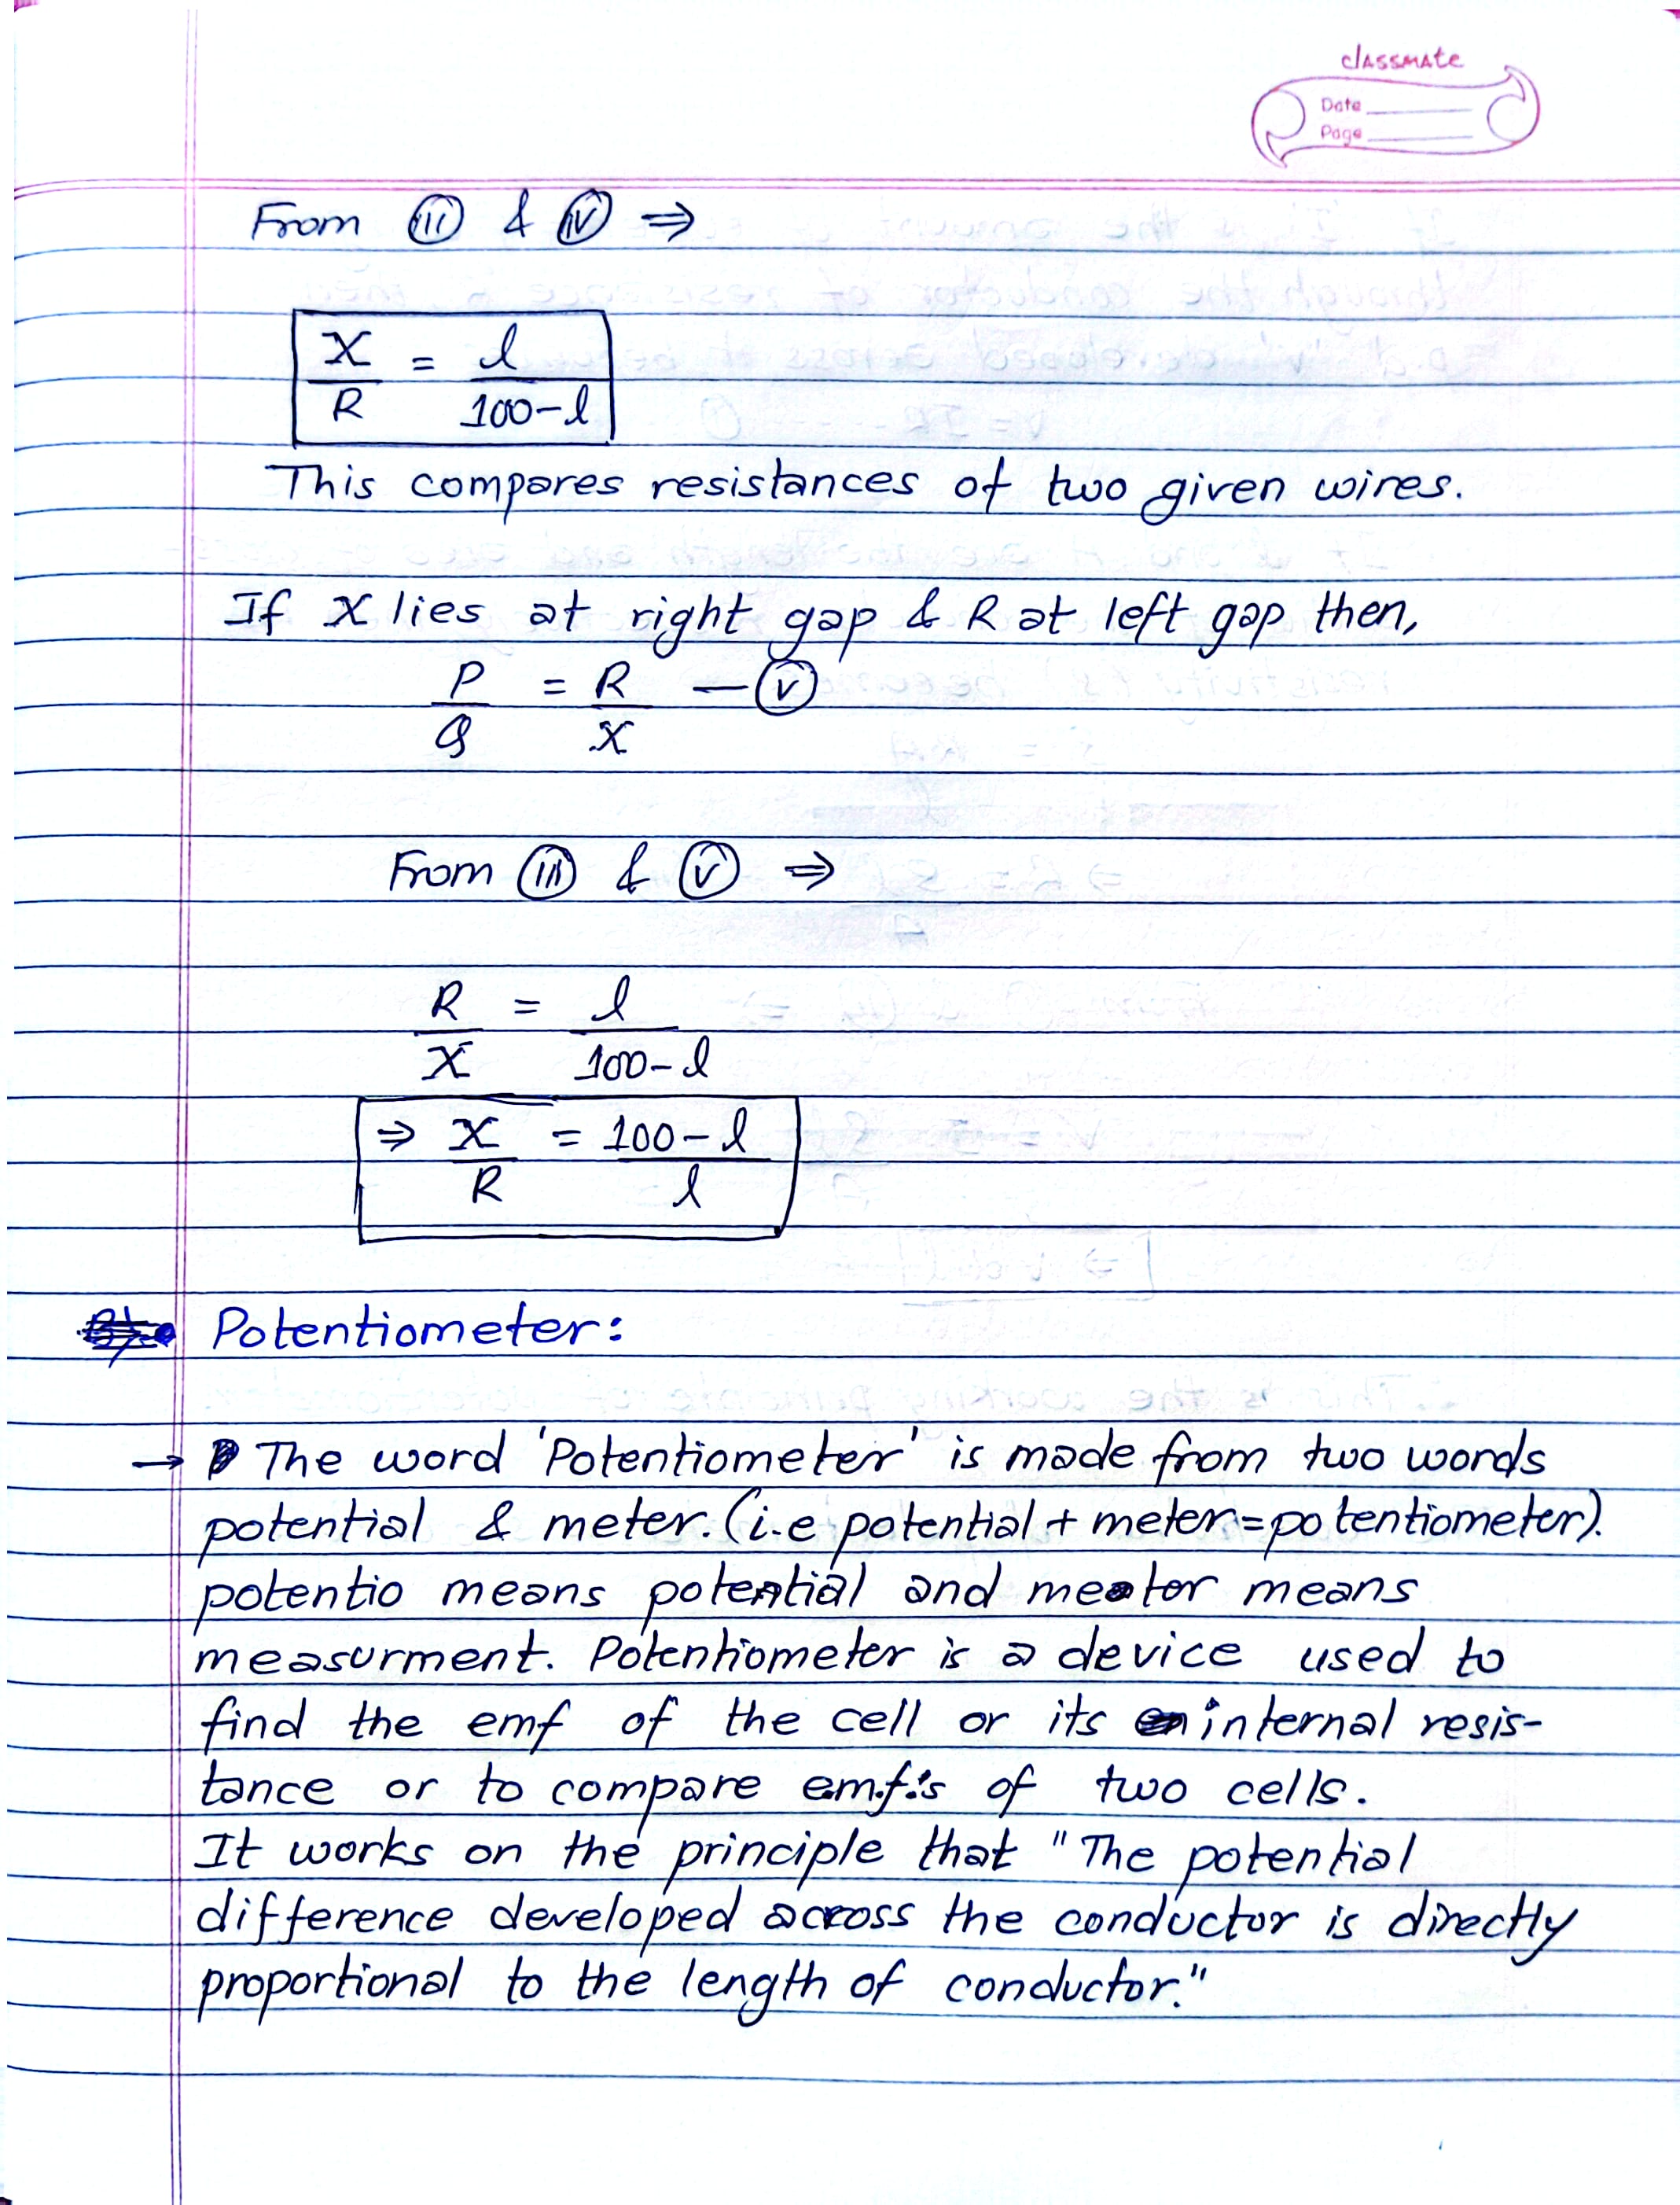 classmate
Date
Page
From (iii) & (iv) ⇒
X/R = l/(100-l)
This compares resistances of two given wires.
If X lies at right gap & R at left gap then,
P/Q = R/X — (v)
From (iii) & (v) ⇒
R/X = l/(100-l)
⇒ X/R = (100-l)/l
Potentiometer:
→ The word 'Potentiometer' is made from two words
potential & meter. (i.e potential + meter = potentiometer).
potentio means potential and metor means
measurment. Potentiometer is a device used to
find the emf of the cell or its internal resis-
tance or to compare e.m.f.'s of two cells.
It works on the principle that "The potential
difference developed across the conductor is directly
proportional to the length of conductor."